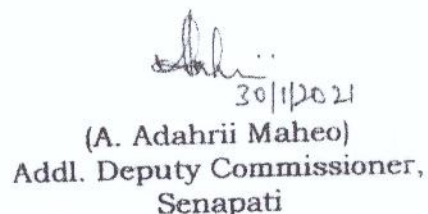 30/1/2021
(A. Adahrii Maheo)
Addl. Deputy Commissioner,
Senapati